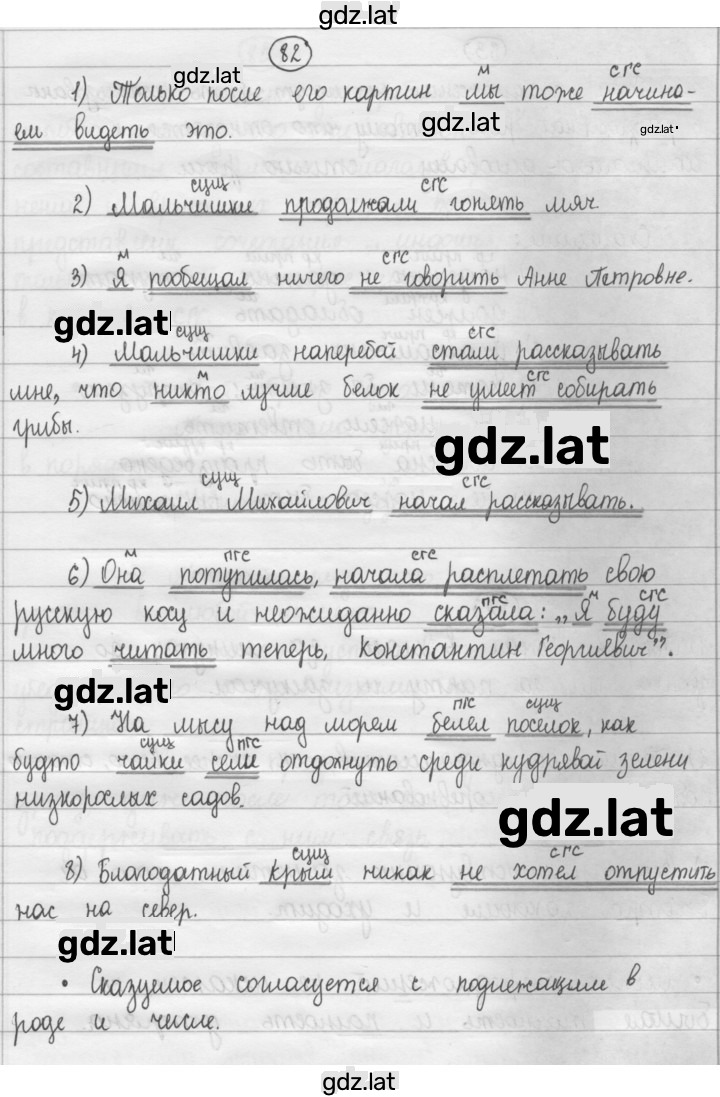 gdz.lat
82
gdz.lat
м сгс
1) Только после его картин мы тоже начина-
gdz.lat
gdz.lat
ем видеть это.
сущ сгс
2) Мальчишки продолжали гонять мяч
м сгс
3) Я пообещал ничего не говорить Анне Петровне.
gdz.lat
сущ сгс
4) Мальчишки наперебой стали рассказывать
м сгс
мне, что никто лучше белок не умеет собирать
грибы.
gdz.lat
сущ сгс
5) Михаил Михайлович начал рассказывать.
м пгс сгс
6) Она потупилась, начала расплетать свою
пгс м сгс
русскую косу и неожиданно сказала: „Я буду
много читать теперь, Константин Георгиевич".
gdz.lat
пгс сущ
7) На мысу над морем белел поселок, как
сущ пгс
будто чайки сели отдохнуть среди кудрявой зелени
низкорослых садов.
gdz.lat
сущ сгс
8) Благодатный крым никак не хотел отпустить
нас на север.
gdz.lat
• Сказуемое согласуется с подлежащим в
роде и числе.
gdz.lat